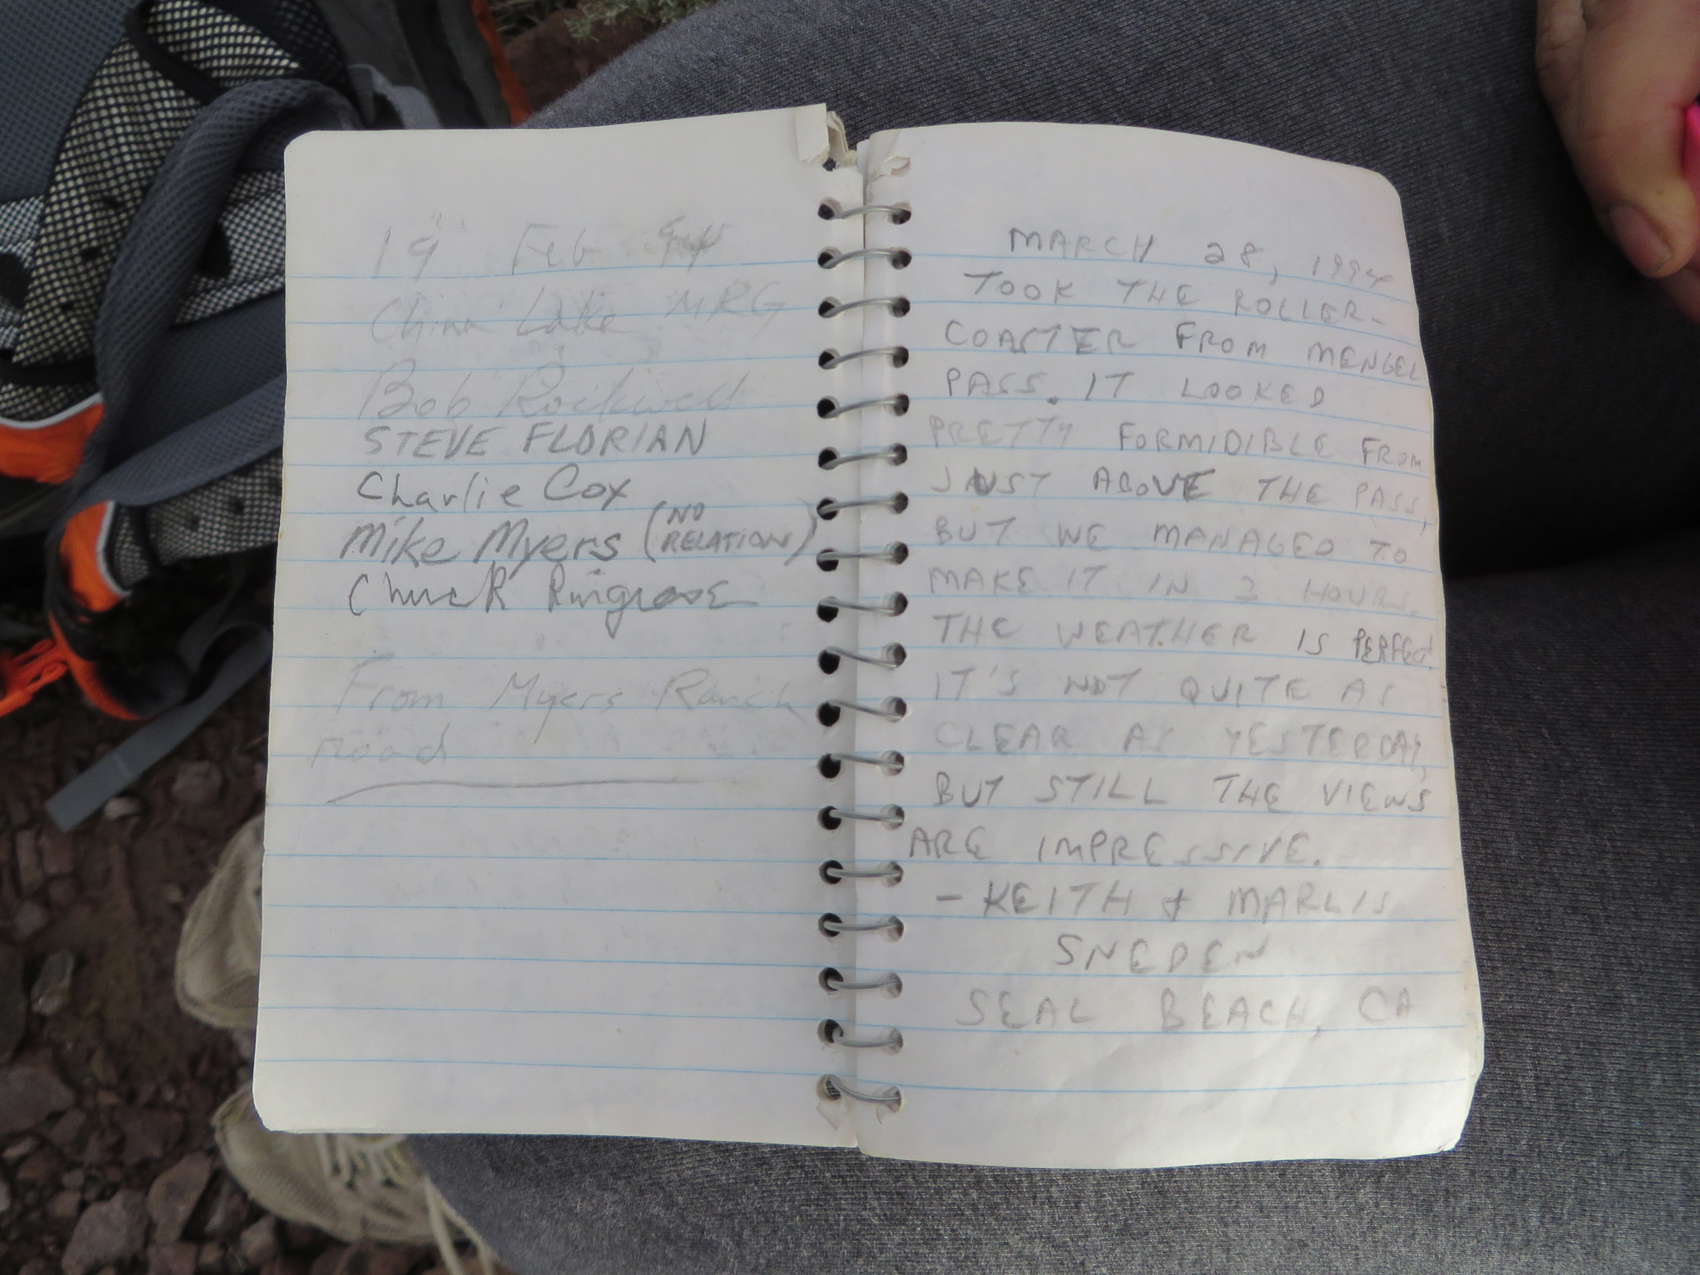 19 Feb 94
China Lake MRG
Bob Rockwell
STEVE FLORIAN
Charlie Cox
Mike Myers (NO RELATION)
Chuck Ringrose
From Myers Ranch
road
MARCH 28, 1994
TOOK THE ROLLER-
COASTER FROM MENGEL
PASS. IT LOOKED
PRETTY FORMIDIBLE FROM
JUST ABOVE THE PASS,
BUT WE MANAGED TO
MAKE IT IN HOURS.
THE WEATHER IS PERFECT.
IT'S NOT QUITE AS
CLEAR AS YESTERDAY,
BUT STILL THE VIEWS
ARE IMPRESSIVE.
- KEITH & MARLIS
SNEDEN
SEAL BEACH, CA